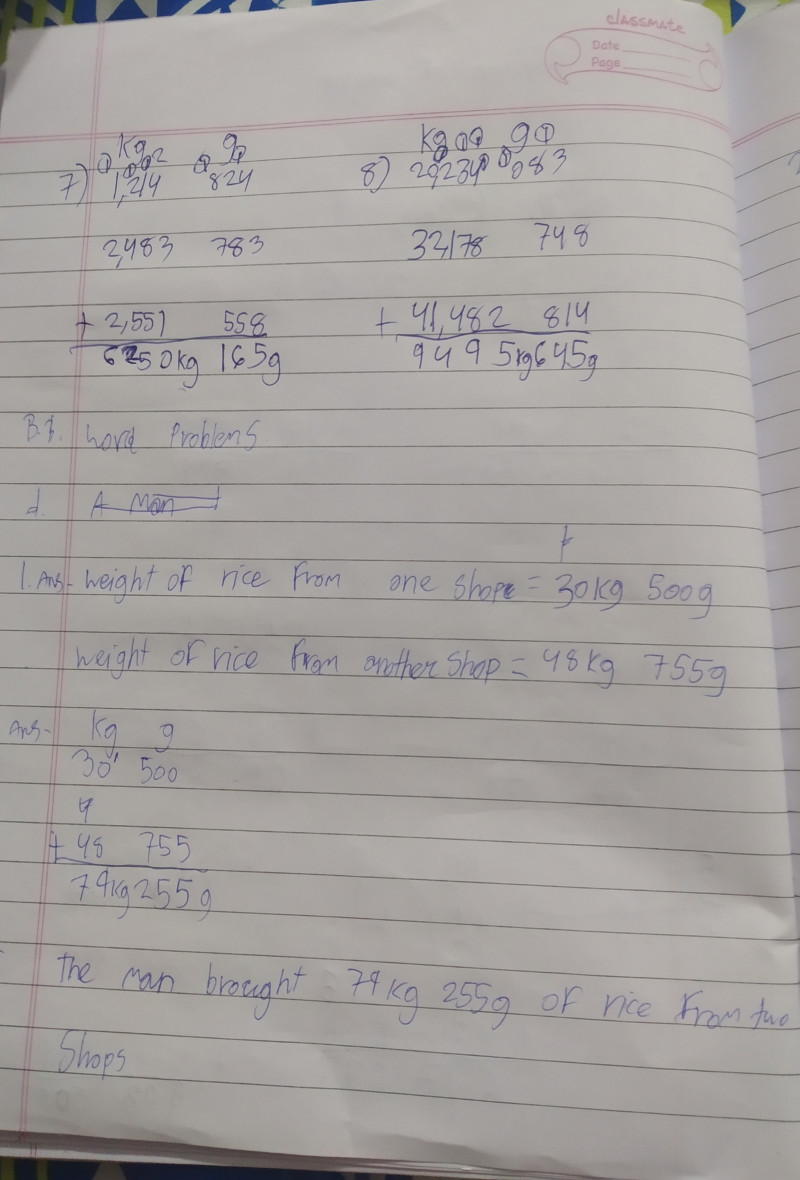 classmate
Date
Page
Kg g Kg g
7) 1,214 824 8) 20,234 083
2,483 783 32,178 748
+ 2,551 558 + 41,482 814
6250kg 165g 9495kg645g
B.1. word Problems
d. A Man
1. Ans- weight of rice from one shop = 30kg 500g
weight of rice from another shop = 48kg 755g
Ans- Kg g
30 500
+ 48 755
79kg255g
the man brought 79kg 255g of rice from two
Shops